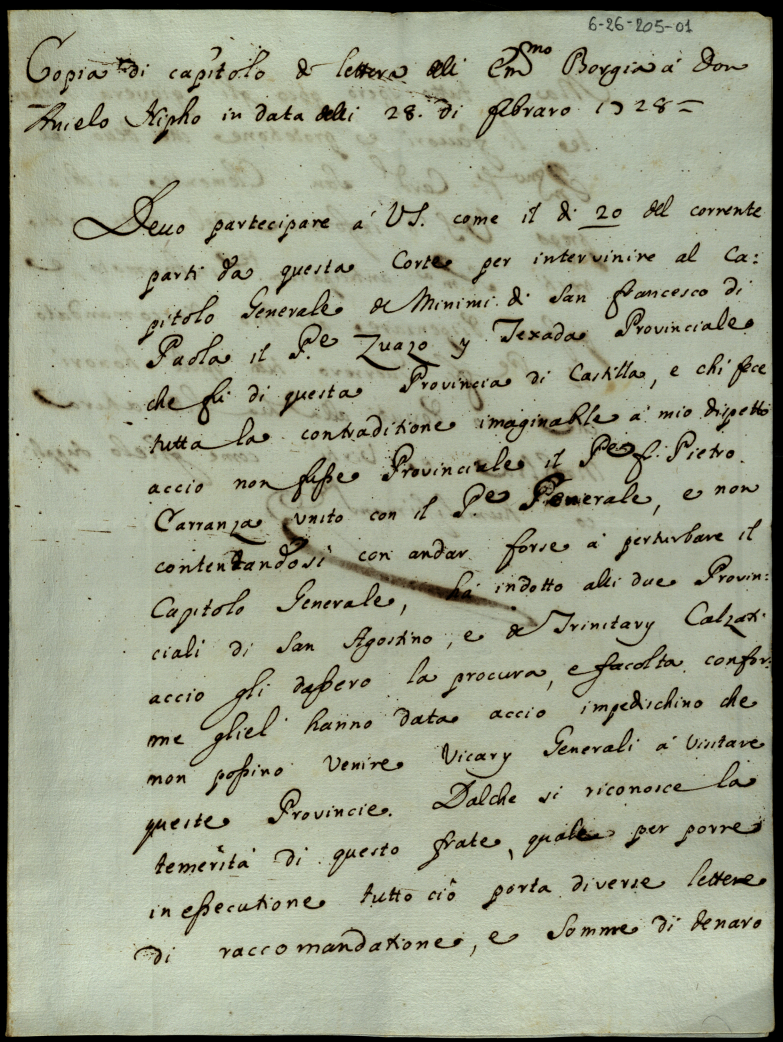 6-26-205-01
Copia di capitolo di lettera dell Em.mo Borgia à Don
Anielo Nipho in data delli 28. di febraro 1728=
Devo partecipare à VS. come il di 20 del corrente
parti da questa Corte per intervinire al Ca:
pitolo Generale de Minimi di San francesco di
Paola il P.e Zuazo y Texada Provinciale
che fù di questa Provincia di Castilla, e chi fece
tutta la contraditione imaginable à mio dispetto
accio non fusse Provinciale il P.e f. Pietro
Carranza unito con il P.e Generale, e non
contentandosi con andar forse à perturbare il
Capitolo Generale, hà indotto alli due Provin:
ciali di San Agostino, e de Trinitary Calzati
accio gli dassero la procura, e facolta confor:
me gliel hanno data accio impedischino che
non possino venire Vicary Generali à visitare
queste Provincie. Dalche si riconosce la
temerità di questo frate, quale per porre
in essecutione tutto ciò porta diverse lettere
di raccomandatione, e Somme di denaro